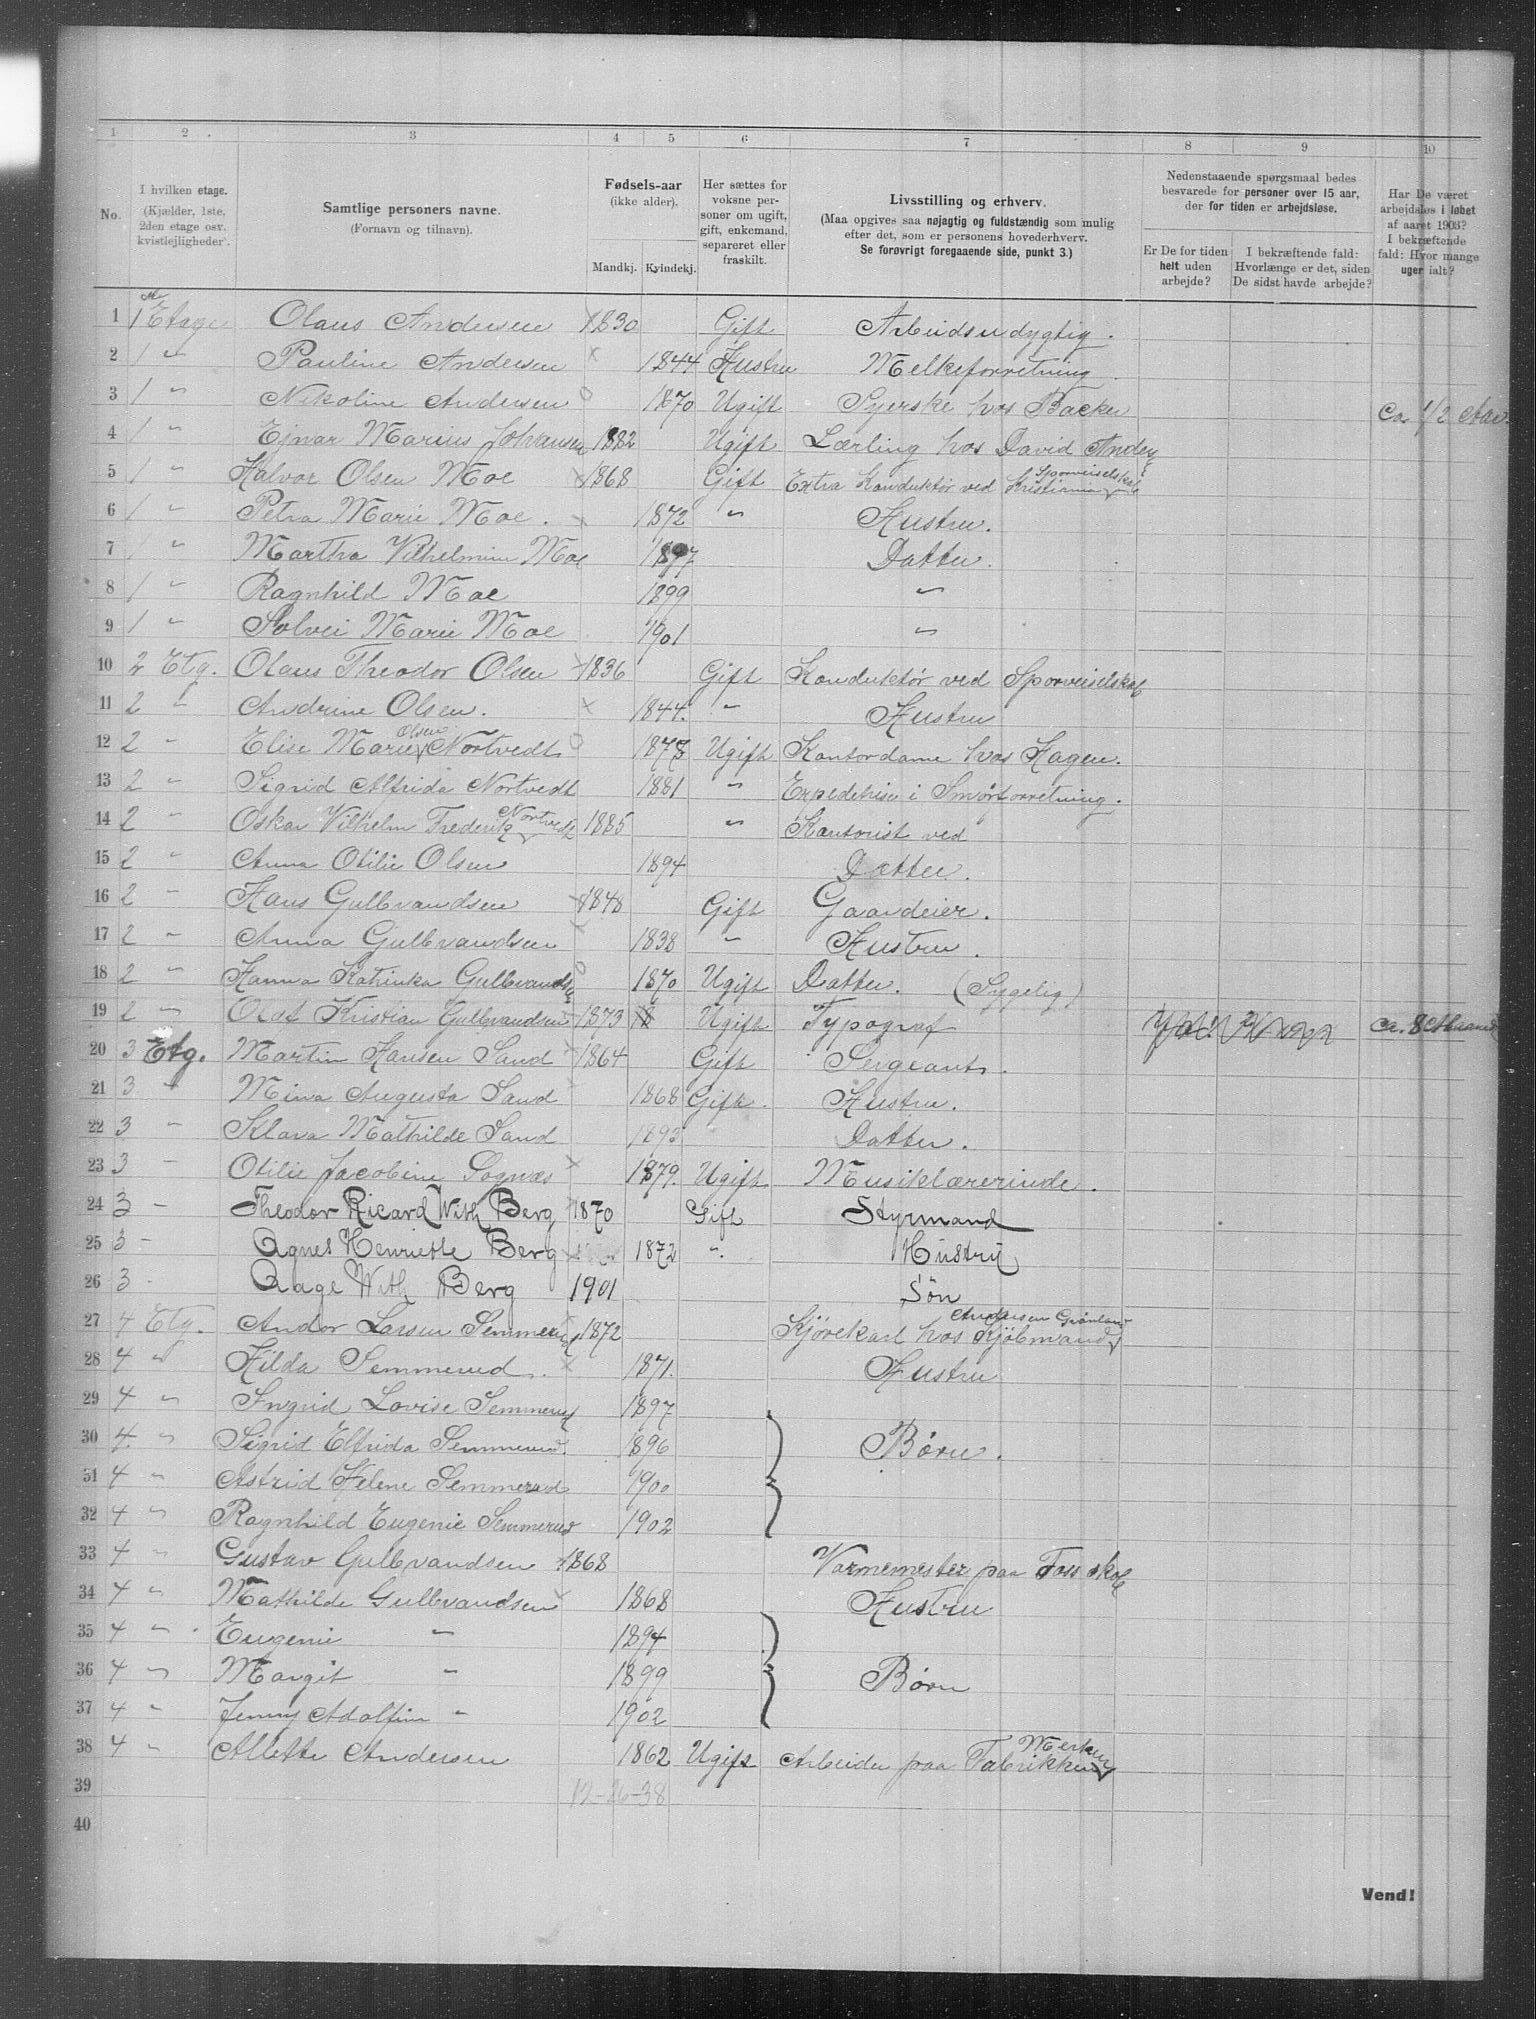 1 2 3 4 5 6 7 8 9 10
No.
I hvilken etage.
(Kjælder, 1ste,
2den etage osv.
kvistlejligheder).
Samtlige personers navne.
(Fornavn og tilnavn).
Fødsels-aar
(ikke alder).
Mandkj. Kvindekj.
Her sættes for
voksne per-
soner om ugift,
gift, enkemand,
separeret eller
fraskilt.
Livsstilling og erhverv.
(Maa opgives saa nøjagtig og fuldstændig som mulig
efter det, som er personens hovederhverv.
Se forøvrigt foregaaende side, punkt 3.)
Nedenstaaende spørgsmaal bedes
besvarede for personer over 15 aar,
der for tiden er arbejdsløse.
Er De for tiden
helt uden
arbejde?
I bekræftende fald:
Hvorlænge er det, siden
De sidst havde arbejde?
Har De været
arbejdsløs i løbet
af aaret 1903?
I bekræftende
fald: Hvor mange
uger ialt?
1 1 Etage Olaus Andersen x 1830 Gift Arbeidsudygtig.
2 1 " Pauline Andersen x 1844 Hustru Melkeforretning
3 1 " Nikoline Andersen o 1870 Ugift Syerske hos Backer Ca. 1/2 Aar.
4 1 " Ejnar Marius Johansen 1882 Ugift Lærling hos David
5 1 " Halvor Olsen Moe x 1868 Gift Extra Konduktør ved Kristiania Sporveiselskab
6 1 " Petra Marie Moe. x 1872 " Hustru.
7 1 " Martha Vilhelmine Moe 1897 Datter.
8 1 " Ragnhild Moe 1899 "
9 1 " Solvei Marie Moe 1901 "
10 2 Etg. Olaus Theodor Olsen x 1836 Gift Konduktør ved Sporveiselskab
11 2 " Andrine Olsen. x 1844. " Hustru
12 2 " Elise Marie Olsen Nortvedt o 1878 Ugift Kontordame hos Hagen.
13 2 " Sigrid Alfrida Nortvedt 1881 " Expeditrise i Smørforretning.
14 2 " Oskar Vilhelm Frederik Nortvedt 1885 " Kontorist ved
15 2 " Anna Otilie Olsen 1894 Datter.
16 2 " Hans Gulbrandsen x 1848 Gift Gaardeier.
17 2 " Anna Gulbrandsen x 1838 " Hustru.
18 2 " Hanna Katinka Gulbrandsen o 1870 Ugift Datter. (Sygelig)
19 2 " Olaf Kristian Gulbrandsen 1873 Ugift Typograf ca. 8
20 3 Etg. Martin Hansen Sand x 1864 Gift Sergeant.
21 3 " Mina Augusta Sand x 1868 Gift. Hustru.
22 3 " Klara Mathilde Sand 1893 Datter.
23 3 " Otilie Jacobine Sognæs x 1879. Ugift Musiklærerinde.
24 3 " Theodor Ricard With Berg x 1870 Gift Styrmand
25 3 " Agnes Henriette Berg x 1872 " Hustru
26 3 " Aage With Berg 1901 Søn
27 4 Etg. Andor Larsen Semmerud x 1872 Kjørekarl hos Kjøbmand Andersen Grønland
28 4 " Hilda Semmerud. x 1871. Hustru
29 4 " Ingrid Lovise Semmerud 1897
30 4. " Sigrid Elfrida Semmerud. 1896 Børn.
31 4 " Astrid Helene Semmerud 1900
32 4 " Ragnhild Eugenie Semmerud 1902
33 4 " Gustav Gulbrandsen x 1868 Varmemester paa Foss skole
34 4 " Mathilde Gulbrandsen x 1868 Hustru
35 4 " Eugenie " 1894
36 4 " Margit " 1899 Børn
37 4 " Jenny Adolfine " 1902
38 4 " Alette Andersen 1862 Ugift Arbeider paa Fabrikken Merkur
39 12-26-38
40
Vend!